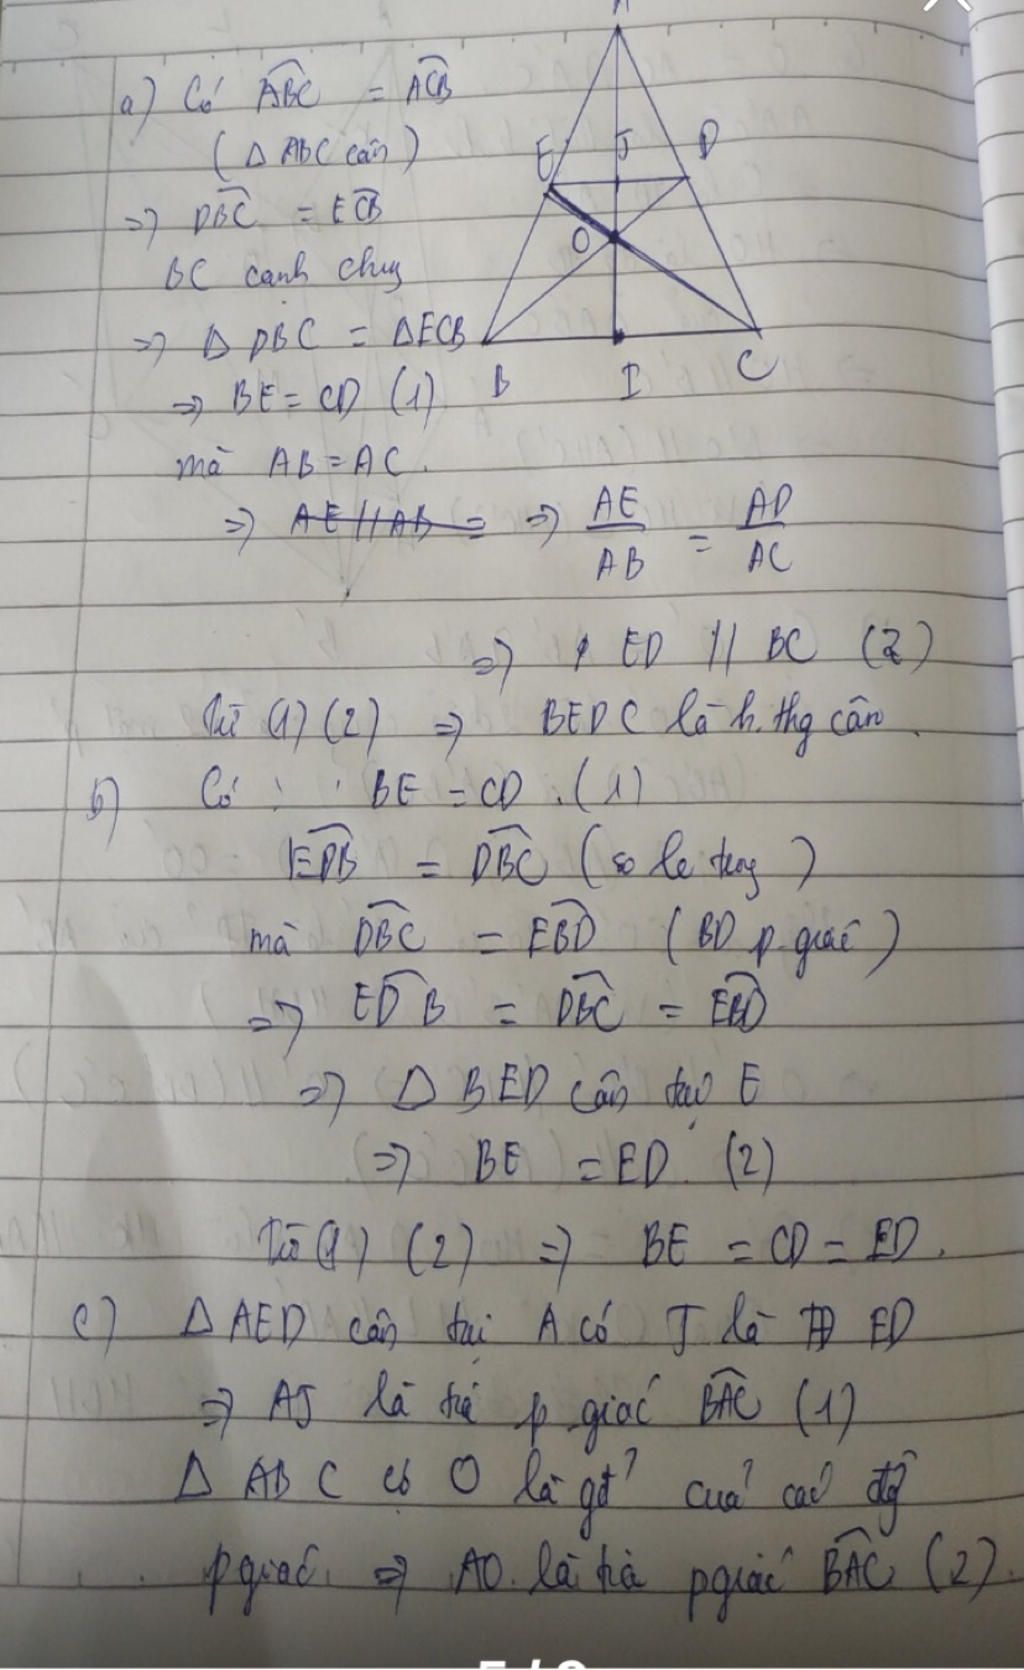 A
a) Có ABC = ACB
(Δ ABC cân)
E J D
=> DBC = ECB
O
BC cạnh chug
=> Δ DBC = ΔECB
B I C
=> BE = CD (1)
mà AB = AC.
=> AE // AB = => AE/AB = AD/AC
=> ED // BC (2)
Từ (1) (2) => BEDC là h.thg cân.
b) Có : BE = CD . (1)
EDB = DBC (so le trog)
mà DBC = EBD (BD p.giác)
=> EDB = DBC = EBD
=> Δ BED cân tại E
=> BE = ED. (2)
Từ (1) (2) => BE = CD = ED.
c) Δ AED cân tại A có J là TĐ ED
=> AJ là tia p giác BAC (1)
Δ ABC có O là gđ' của các đg
pgiác. => AO. là tia pgiác BAC (2).